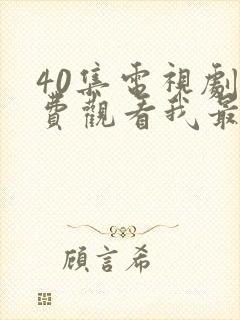 40集電視劇
費觀看我最
顧言希